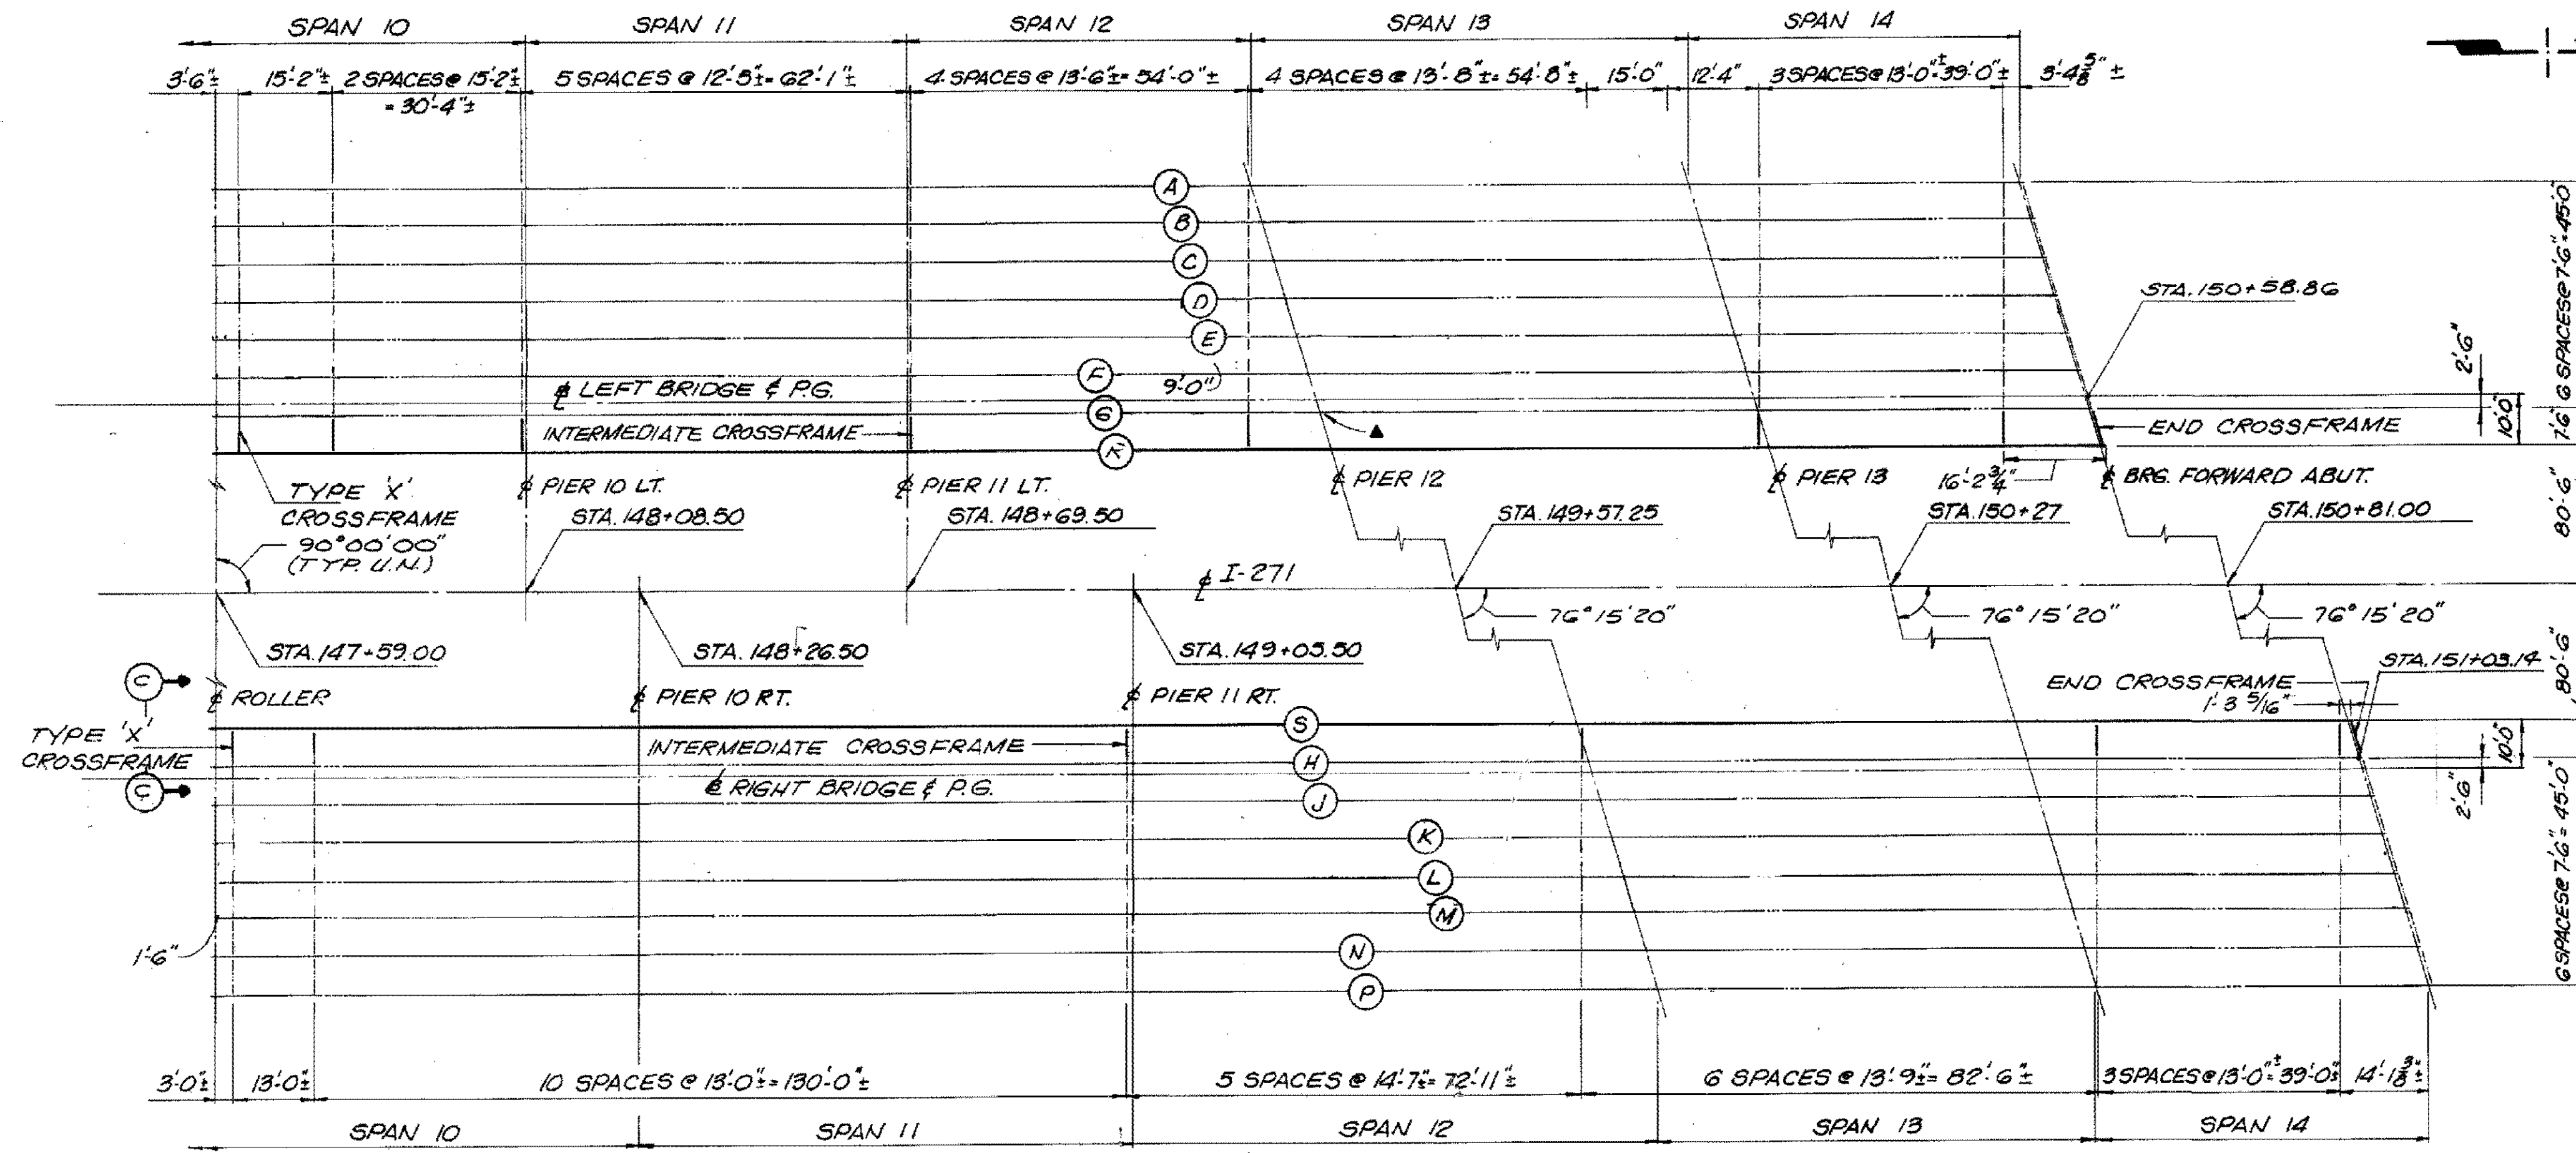 SPAN 10
SPAN 11
SPAN 12
SPAN 13
SPAN 14
3'-6"±
15'-2"±
2 SPACES @ 15'-2"±
= 30'-4"±
5 SPACES @ 12'-5"± = 62'-1"±
4 SPACES @ 13'-6"± = 54'-0"±
4 SPACES @ 13'-8"± = 54'-8"±
15'-0"
12'-4"
3 SPACES @ 13'-0"± = 39'-0"±
3'-4 5/8"±
A
B
C
D
E
F
G
R
9'-0"
℄ LEFT BRIDGE & P.G.
INTERMEDIATE CROSSFRAME
STA. 150+58.86
2'-6"
10'-0"
7'-6"
6 SPACES @ 7'-6" = 45'-0"
END CROSSFRAME
TYPE 'X'
CROSSFRAME
90°00'00"
(TYP. U.N.)
℄ PIER 10 LT.
℄ PIER 11 LT.
℄ PIER 12
℄ PIER 13
16'-2 3/4"
℄ BRG. FORWARD ABUT.
80'-6"
STA. 148+08.50
STA. 148+69.50
STA. 149+57.25
STA. 150+27
STA. 150+81.00
℄ I-271
76°15'20"
76°15'20"
76°15'20"
STA. 147+59.00
STA. 148+26.50
STA. 149+05.50
STA. 151+03.14
80'-6"
C
℄ ROLLER
℄ PIER 10 RT.
℄ PIER 11 RT.
END CROSSFRAME
1'-3 5/16"
TYPE 'X'
CROSSFRAME
INTERMEDIATE CROSSFRAME
C
℄ RIGHT BRIDGE & P.G.
S
H
J
K
L
M
N
P
10'-0"
2'-6"
6 SPACES @ 7'-6" = 45'-0"
1'-6"
3'-0"±
13'-0"±
10 SPACES @ 13'-0"± = 130'-0"±
5 SPACES @ 14'-7"± = 72'-11"±
6 SPACES @ 13'-9"± = 82'-6"±
3 SPACES @ 13'-0"± = 39'-0"±
14'-1 3/8"±
SPAN 10
SPAN 11
SPAN 12
SPAN 13
SPAN 14